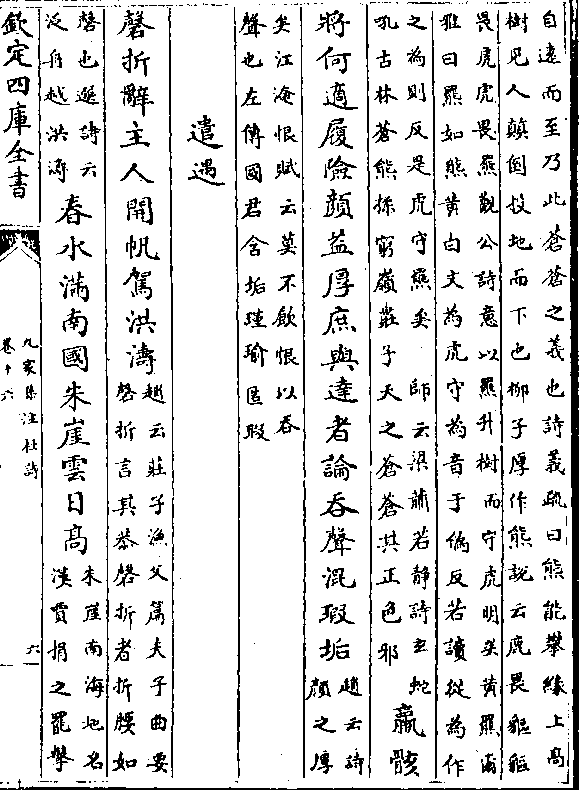 自遠而至乃此蒼蒼之義也詩義疏曰熊能攀緣上高
樹見人顛倒投地而下也柳子厚作熊說云鹿畏貙貙
畏虎虎畏羆觀公詩意以羆升樹而守虎明矣黄羆爾
雅曰羆如熊黄白文為虎守為音于偽反若讀從為作
之為則反是虎守羆矣　師云梁蕭若靜詩玄蛇
孔古林蒼熊探窮嶺莊子天之蒼蒼其正色邪
羸骸
將何適履險顔益厚庶與達者論吞聲混瑕垢
趙云詩
顔之厚
矣江淹恨賦云莫不飲恨以吞
聲也左傳國君含垢瑾瑜匿瑕
遣遇
磬折辭主人開帆駕洪濤
趙云莊子漁父篇夫子曲要
磬折言其恭磬折者折腰如
磬也選詩云
泛舟越洪濤
春水滿南國朱崖雲日高
朱崖南海地名
漢賈捐之罷擊
欽定四庫全書
九家集注杜詩
卷十六
六